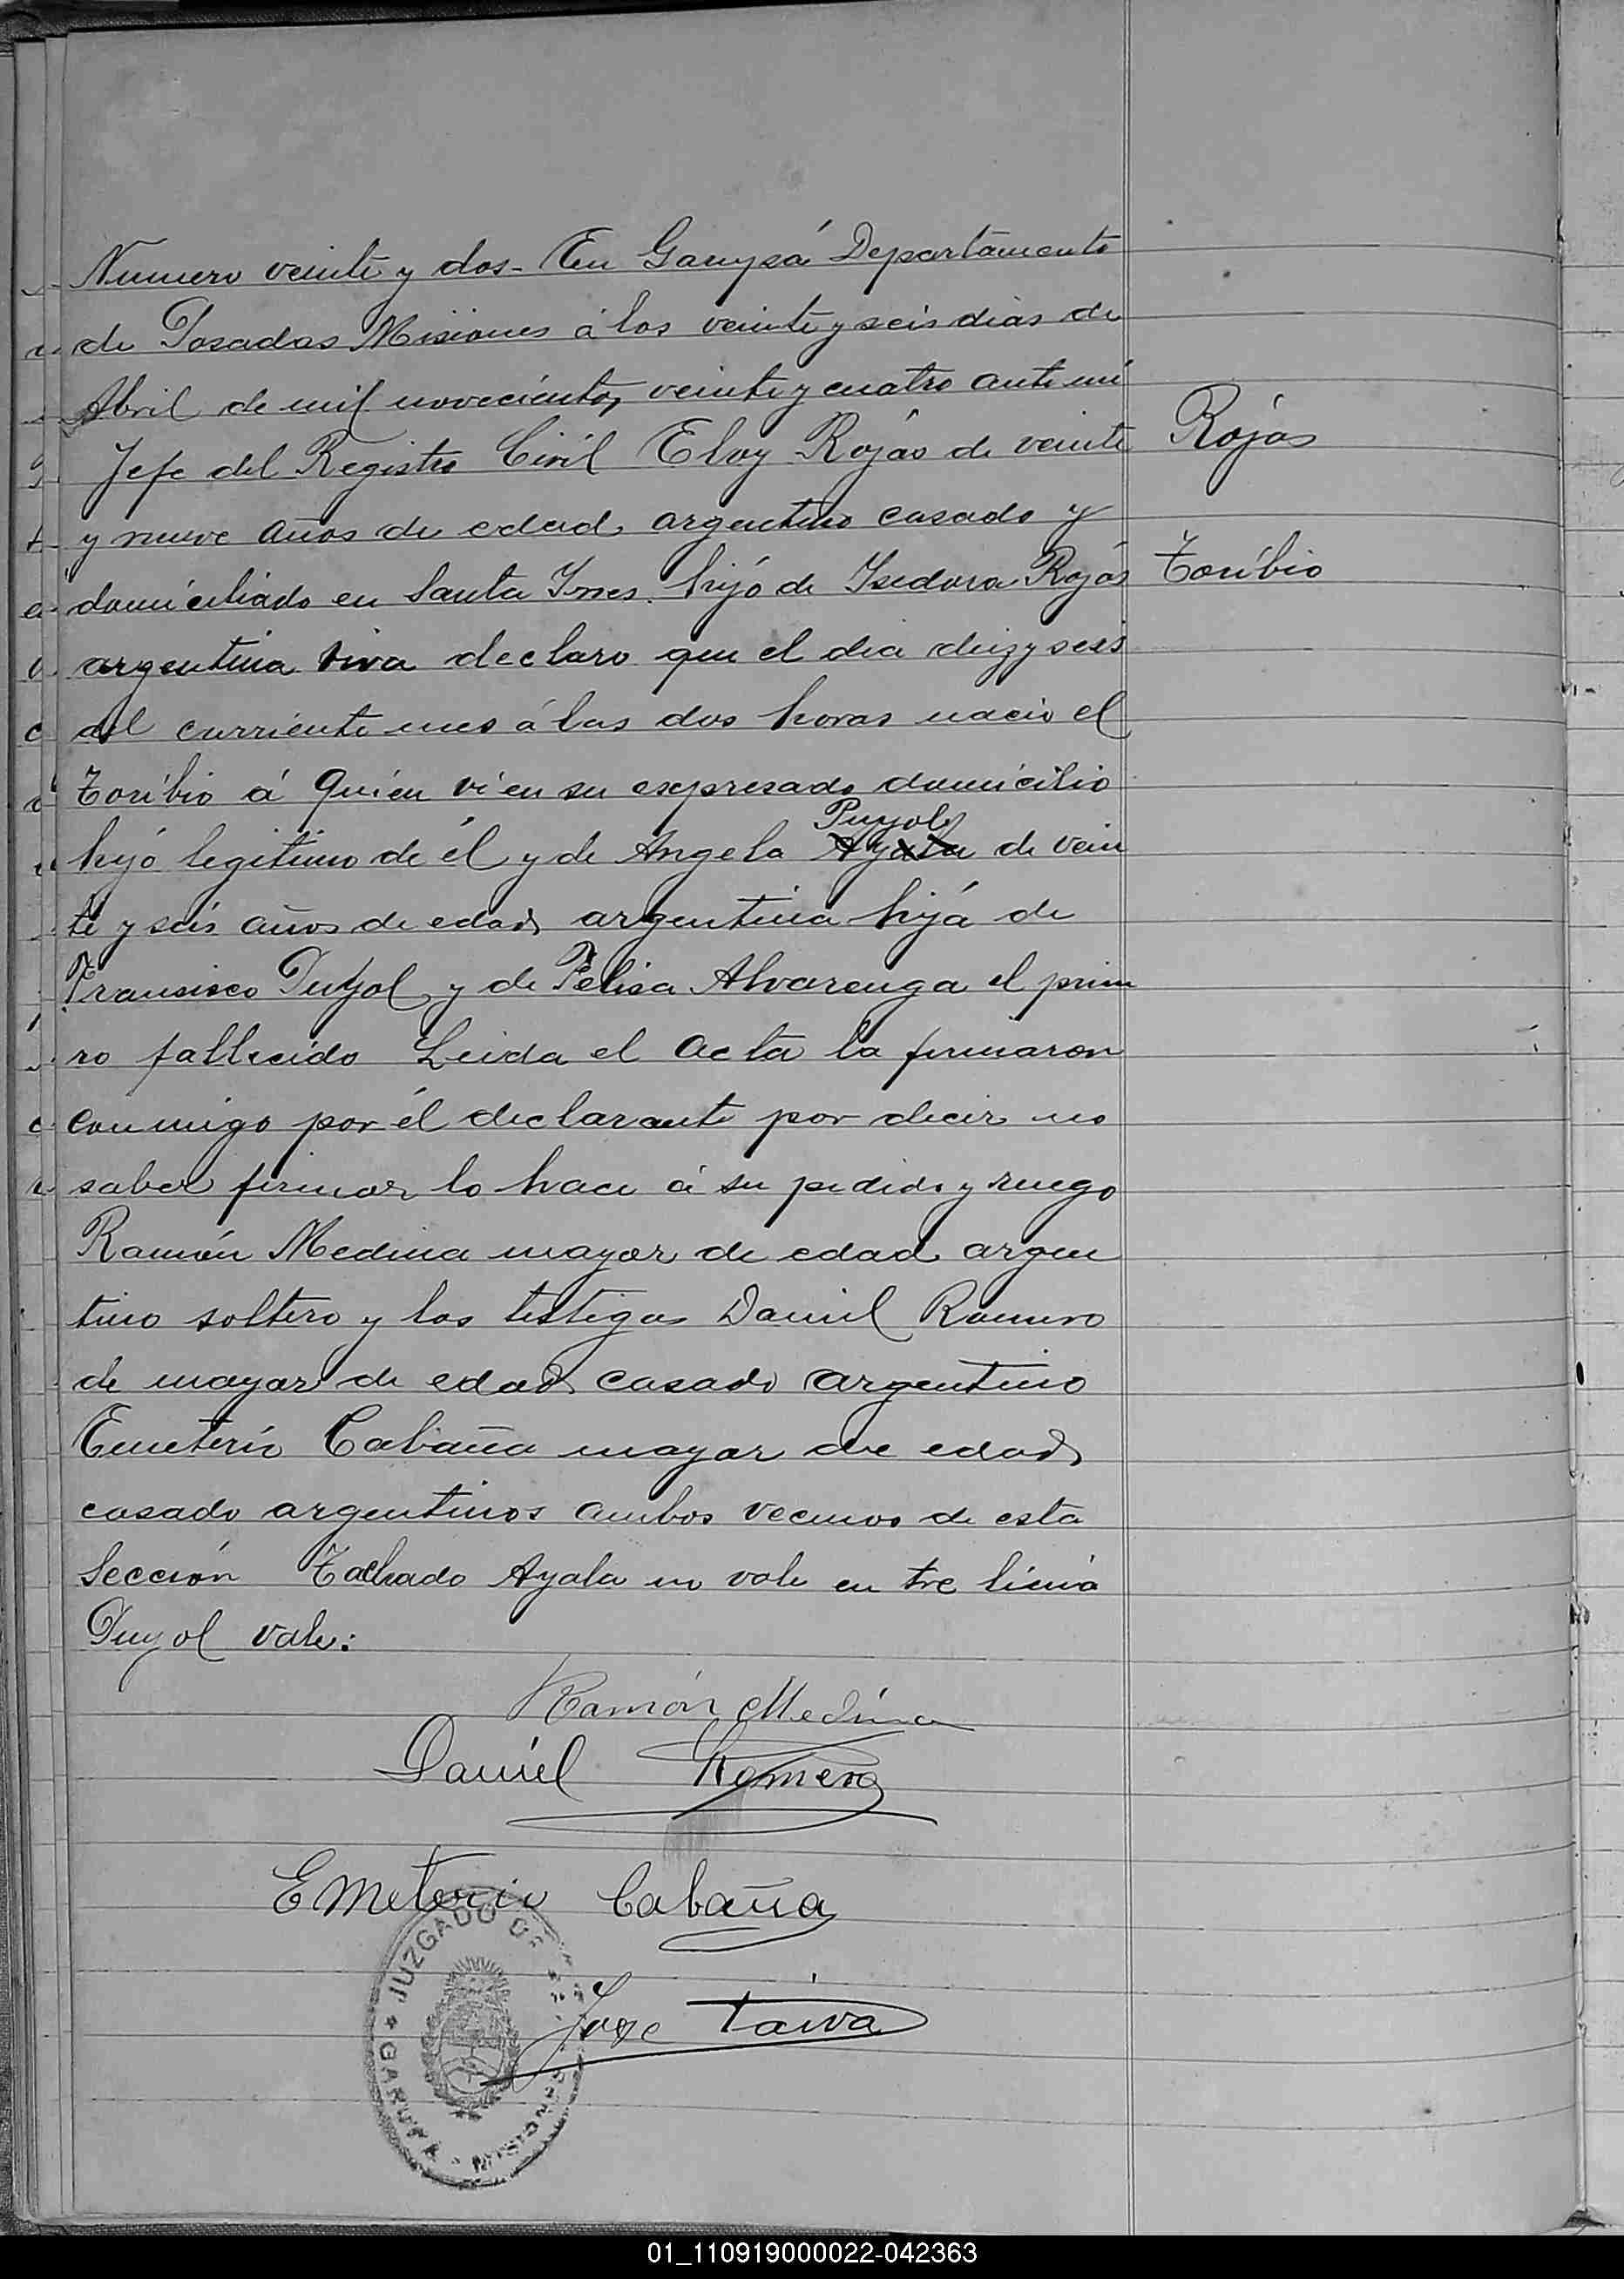 Numero veinte y dos - En Garupá Departamento
de Posadas Misiones á los veinte y seis dias de
Abril de mil novecientos veinte y cuatro ante mi
Jefe del Registro Civil Eloy Rojás de veinte
Rojás
y nueve años de edad argentino casado y
domiciliado en Santa Ynes. hijó de Ysidora Rojás
Toribio
argentina viva declaro que el dia diez y seis
del curriente mes á las dos horas nacio el
Toribio á quien ví en su expresado domicilio
Puyol
hijó legitimo de él y de Angela Ayala de vein
te y seis años de edad argentina hijá de
Fransisco Puyol y de Felisa Alvarenga el prime
ro fallecido Leida el acta la firmaron
conmigo por él declarante por decir no
saber firmar lo hace á su pedido y ruego
Ramón Medina mayor de edad argen
tino soltero y los testigos Daniel Romero
de mayor de edad casado argentino
Emeterio Cabaña mayor de edad
casado argentinos ambos vecinos de esta
Sección Tachado Ayala no vale en tre liniá
Puyol vale:
Ramón Medina
Daniel Romero
Emeterio Cabaña
JUZGADO DE
GARUPÁ
Jose
01_110919000022-042363